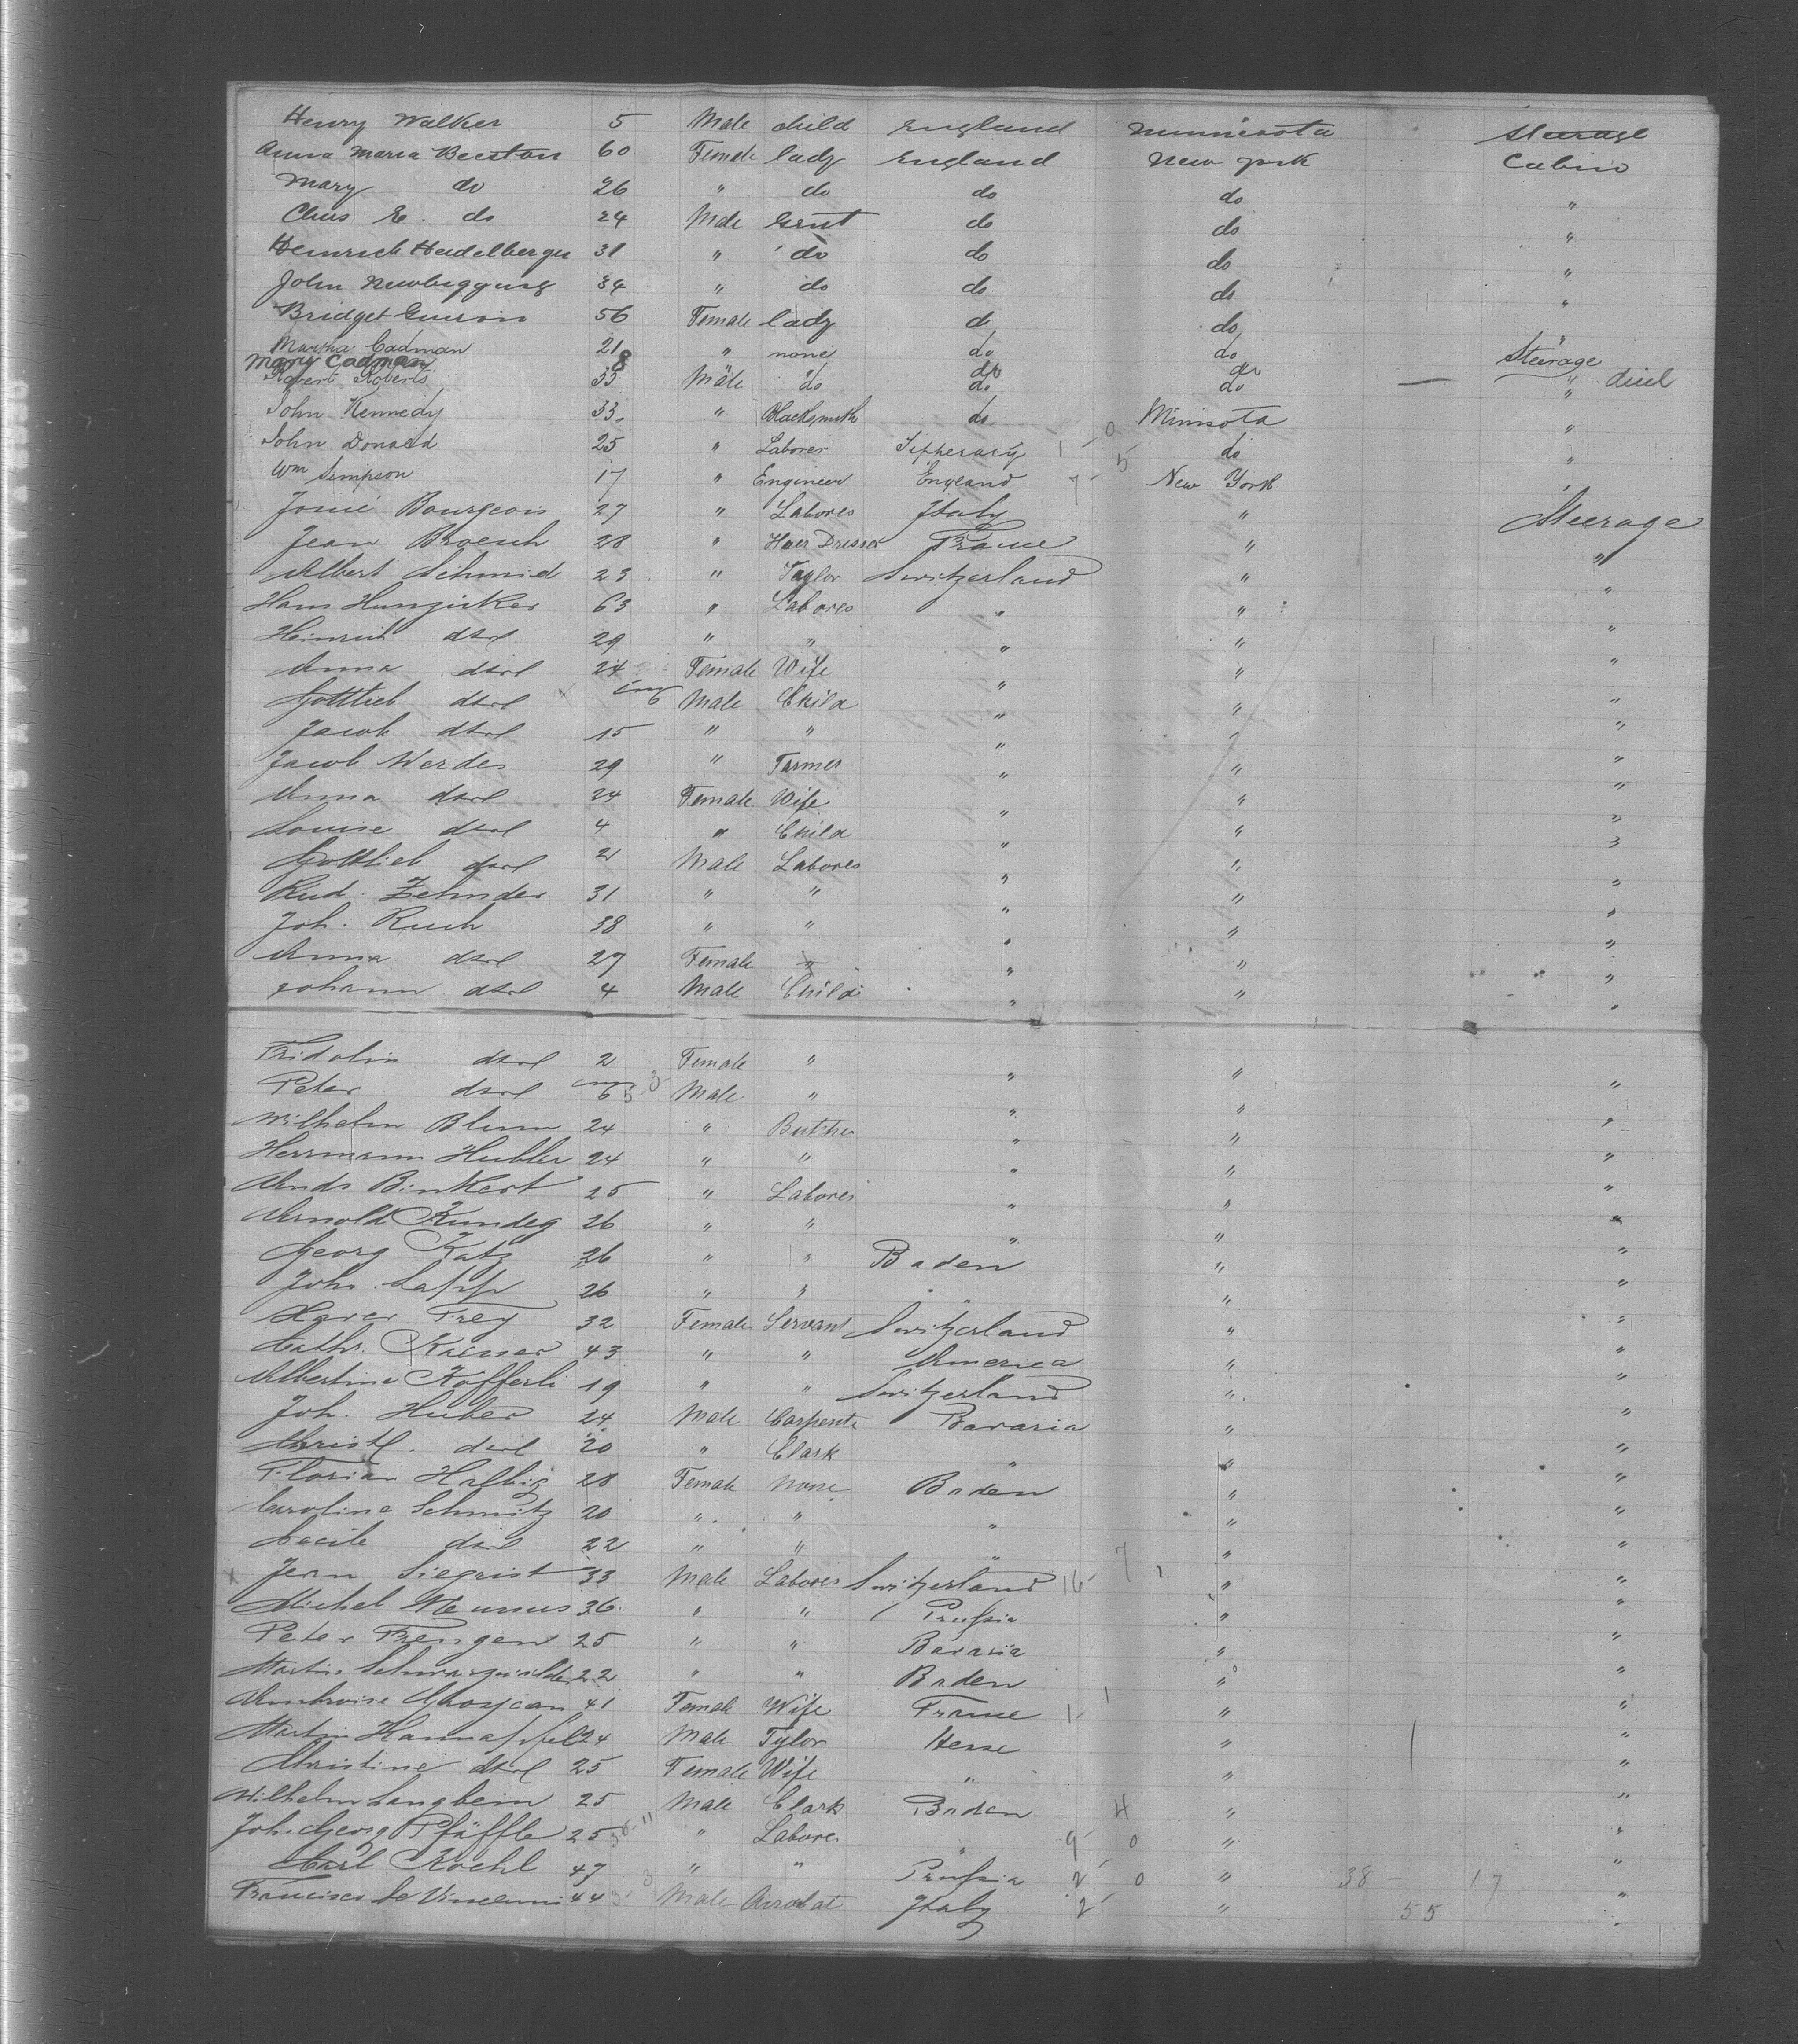 Henry Walker 5 Male child England Minnesota Steerage
Anna Maria Beeston 60 Female lady England New York Cabin
Mary do 26 " do do do "
Chas E. do 24 Male Gent do do "
Heinrich Heidelberger 31 " do do do "
John Newbigging 34 " do do do "
Bridget 56 Female lady do do "
Martha Cadman 21 " none do do Steerage
Mary Cadman 8 " " do do " died
Robert Roberts 33 Male do do do "
John Kennedy 33 " Blacksmith do Minisota "
John Donald 25 " Laborer Tipperary 1 5 do "
Wm Simpson 17 " Engineer England 7 New York "
Bourgeois 27 " Labores Italy " Steerage
Jean Broesch 28 " Haer Dresser France " "
Albert Schmid 23 " Taylor Switzerland " "
Hans Hunzicker 63 " Labores " " "
Heinrich dsrl 29 " " " " "
Anna dsrl 24 Female Wife " " "
Gottlieb dsrl 6 Male Child " " "
Jacob dsrl 15 " " " " "
Jacob Werder 29 " Farmer " " "
Anna dsrl 24 Female Wife " " "
Louise dsrl 4 " Child " " "
Gottlieb dsrl 21 Male Labores " " "
Rud. Zehnder 31 " " " " "
Joh. Ruch 38 " " " " "
Anna dsrl 27 Female " " " "
Johann dsrl 4 Male Child " " "
Fridolin dsrl 2 Female " " " "
Peter dsrl 6 Male " " " "
Wilhelm Blum 24 " Butcher " " "
Herrmann Hubler 24 " " " " "
Ands Binkert 25 " Labores " " "
Arnold Kundeg 26 " " " " "
Georg Katz 26 " " Baden " "
Joh. Lapp 26 " " " " "
Xaver Frey 32 Female Servant Switzerland " "
Cathr. 43 " " America " "
Albertine Kofferli 19 " " Switzerland " "
Joh. Huber 24 Male Carpente Bavaria " "
Christ. dsrl 20 " Clark " " "
Florian Halbig 28 Female None Baden " "
Caroline Schmitz 20 " " " " "
Cacile dsrl 22 " " " " "
Jean Siegrist 33 Male Labores Switzerland 16 7 " "
Michel 36 " " Prussia " "
Peter Frengen 25 " " Bavaria " "
Martin Schwarzwalder 22 " " Baden " "
Ambroise Grosjean 41 Female Wife France 1 1 " "
Martin Hannapfel 24 Male Tylor Hesse " "
Christine dsrl 25 Female Wife " " "
Wilhelm Langbein 25 Male Clark Baden 4 " "
Joh. Georg Pfäffle 25 " Labore. " 9 0 " "
Carl Koehl 47 " " Prussia 2 0 " 38 - 17 "
Francisco De Vincenni 44 Male Acrobat Italy 2 " 55 "